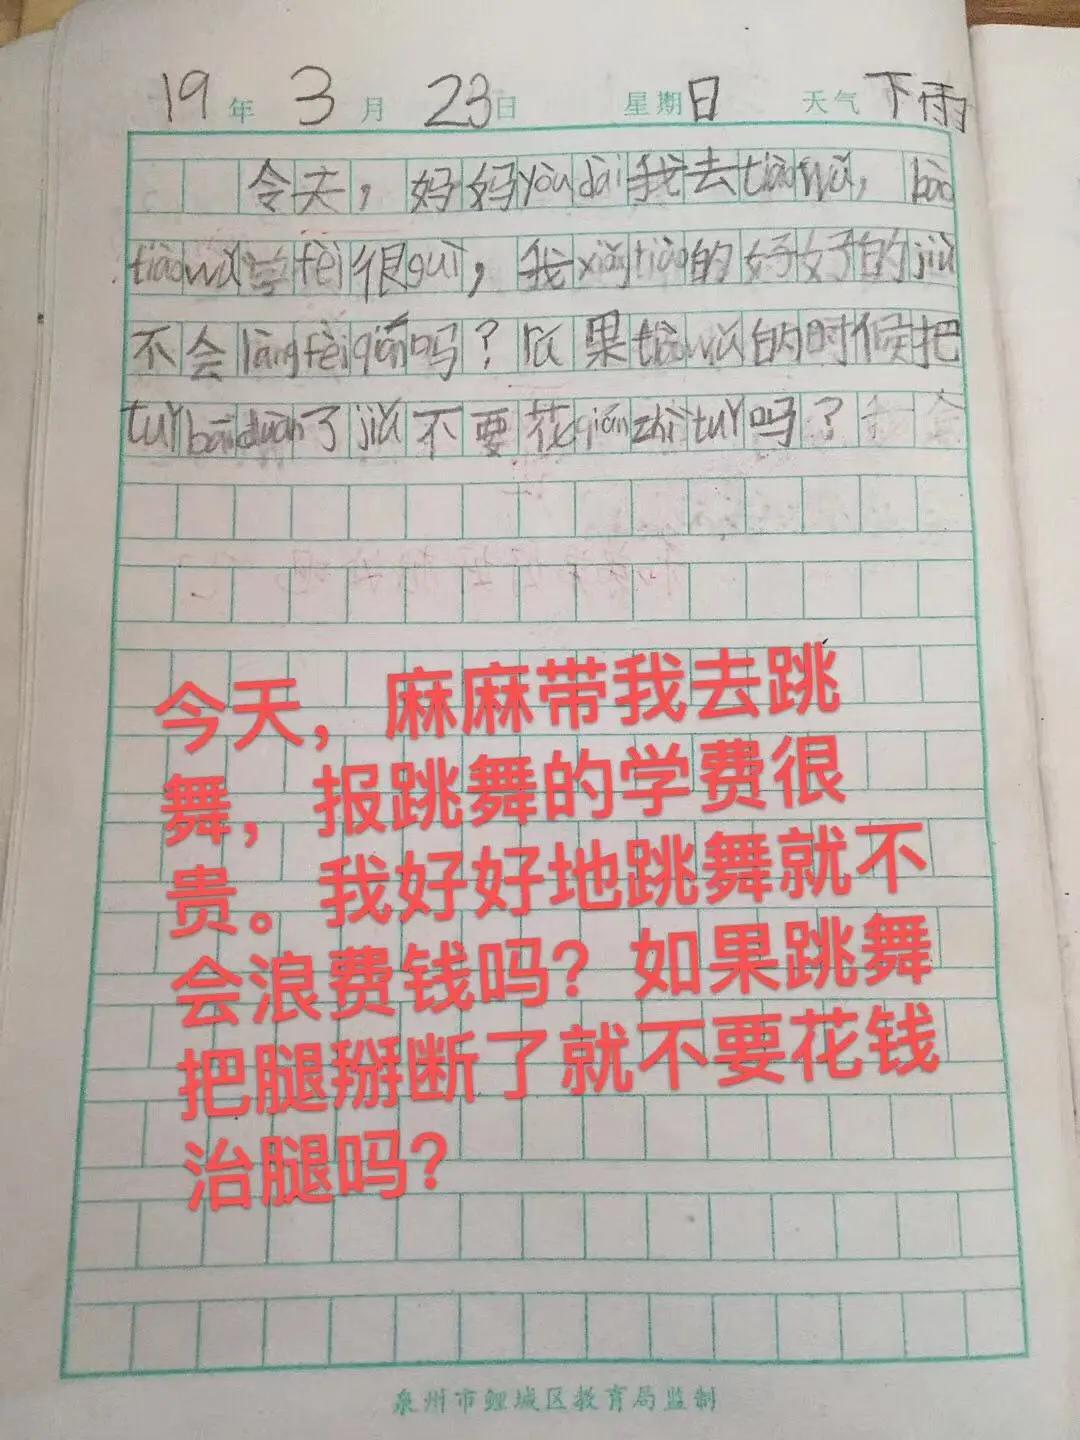 19年 3月 23日 星期日 天气 下雨
今天，妈妈yòu dài我去tiào wǔ，bào
tiào wǔ学fèi很guì，我xiǎng tiào的好好的jiù
不会làng fèi qián吗？rú果tiào wǔ的时候把
tuǐ bāi duàn了jiù不要花qián zhì tuǐ吗？
今天，麻麻带我去跳
舞，报跳舞的学费很
贵。我好好地跳舞就不
会浪费钱吗？如果跳舞
把腿掰断了就不要花钱
治腿吗？
泉州市鲤城区教育局监制